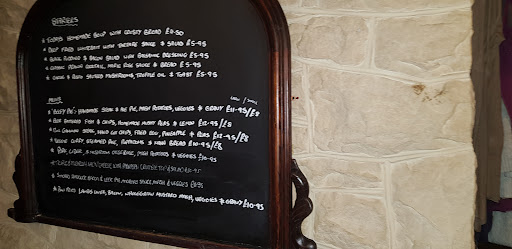 STARTERS
* TODAYS HOMEMADE SOUP WITH CRUSTY BREAD £4.50
* DEEP FRIED WHITEBAIT WITH TARTARE SAUCE & SALAD £5.95
* BLACK PUDDING & BACON SALAD WITH BALSAMIC DRESSING £5.95
* CLASSIC PRAWN COCKTAIL, MARIE ROSE SAUCE & BREAD £5.95
* GARLIC & STUFFED MUSHROOMS, TRUFFLE OIL & TOAST £5.95
MAINS
* 'BEEFY PIE' HOMEMADE STEAK & ALE PIE, MASH POTATOES, VEGGIES & GRAVY £11.95/£8
* BEER BATTERED FISH & CHIPS, HOMEMADE MUSHY PEAS & LEMON £12.95/£8
* GAMMON STEAK, HAND CUT CHIPS, FRIED EGG, PINEAPPLE & PEAS £12.95/£8
* CURRY, STEAMED RICE, POPPADOMS & NAAN BREAD £10.95/£8
* PORK, CIDER, & MUSHROOM CASSEROLE, MASH POTATOES & VEGGIES £10.95
* & LEEK PIE, SAUCE, MASH & VEGGIES
* PAN FRIED LAMBS LIVER, BACON, WHOLEGRAIN MUSTARD MASH, VEGGIES & GRAVY £10.95